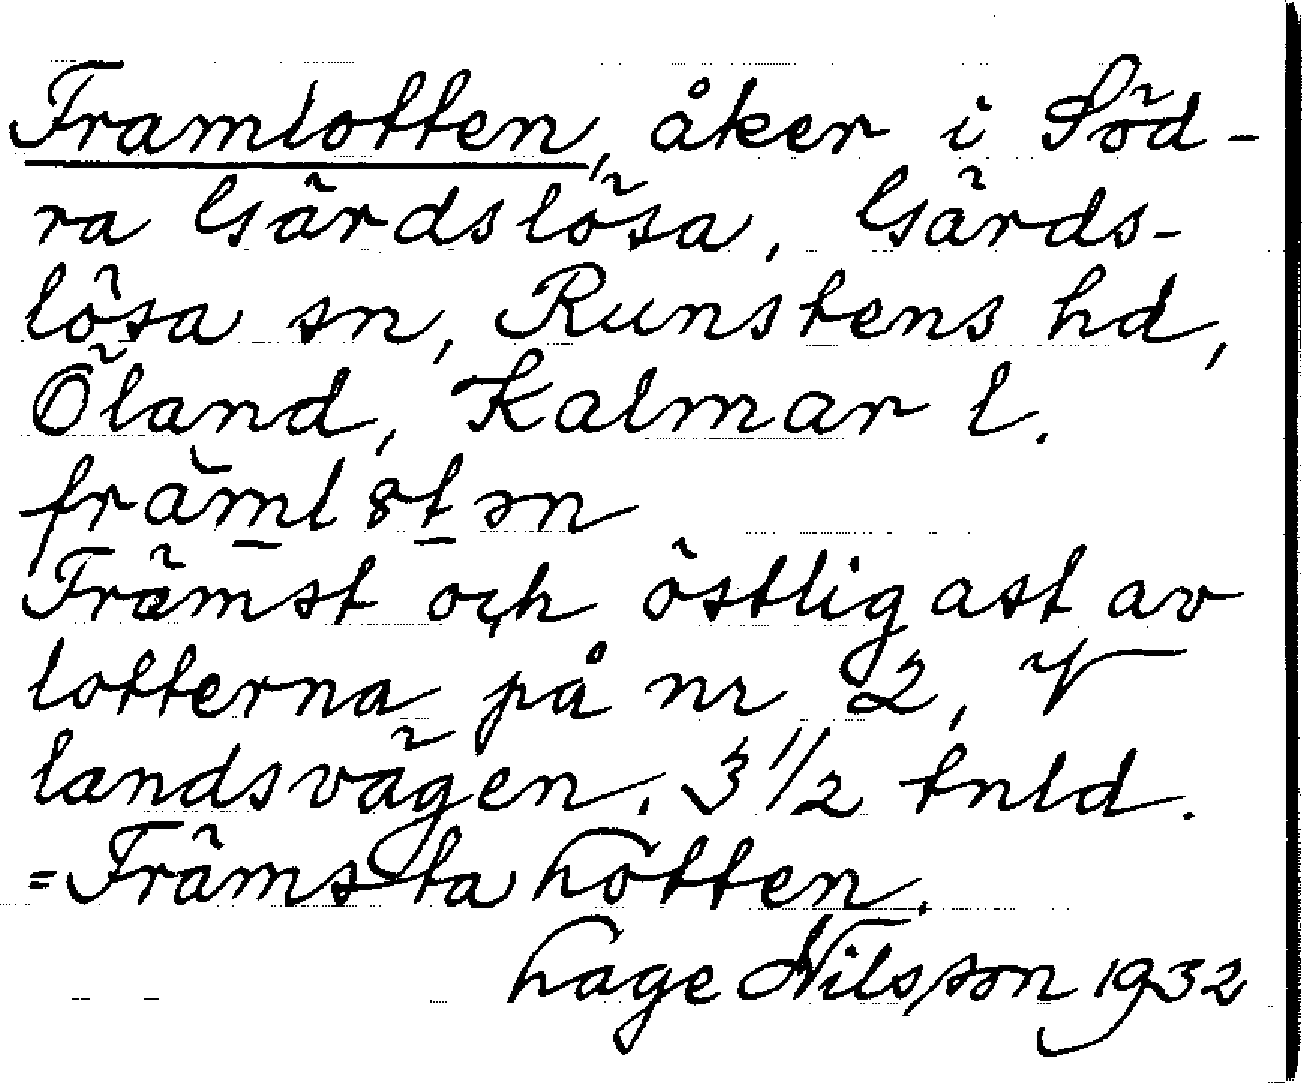 Framlotten, åker i Söd-
ra Gärdslösa, Gärds-
lösa sn, Runstens hd,
Öland, Kalmar l.
fràml8tən
Främst och östligast av
lotterna på nr 2, V
landsvägen. 3 1/2 tnld.
= Främsta Lotten.
Lage Nilsson 1932